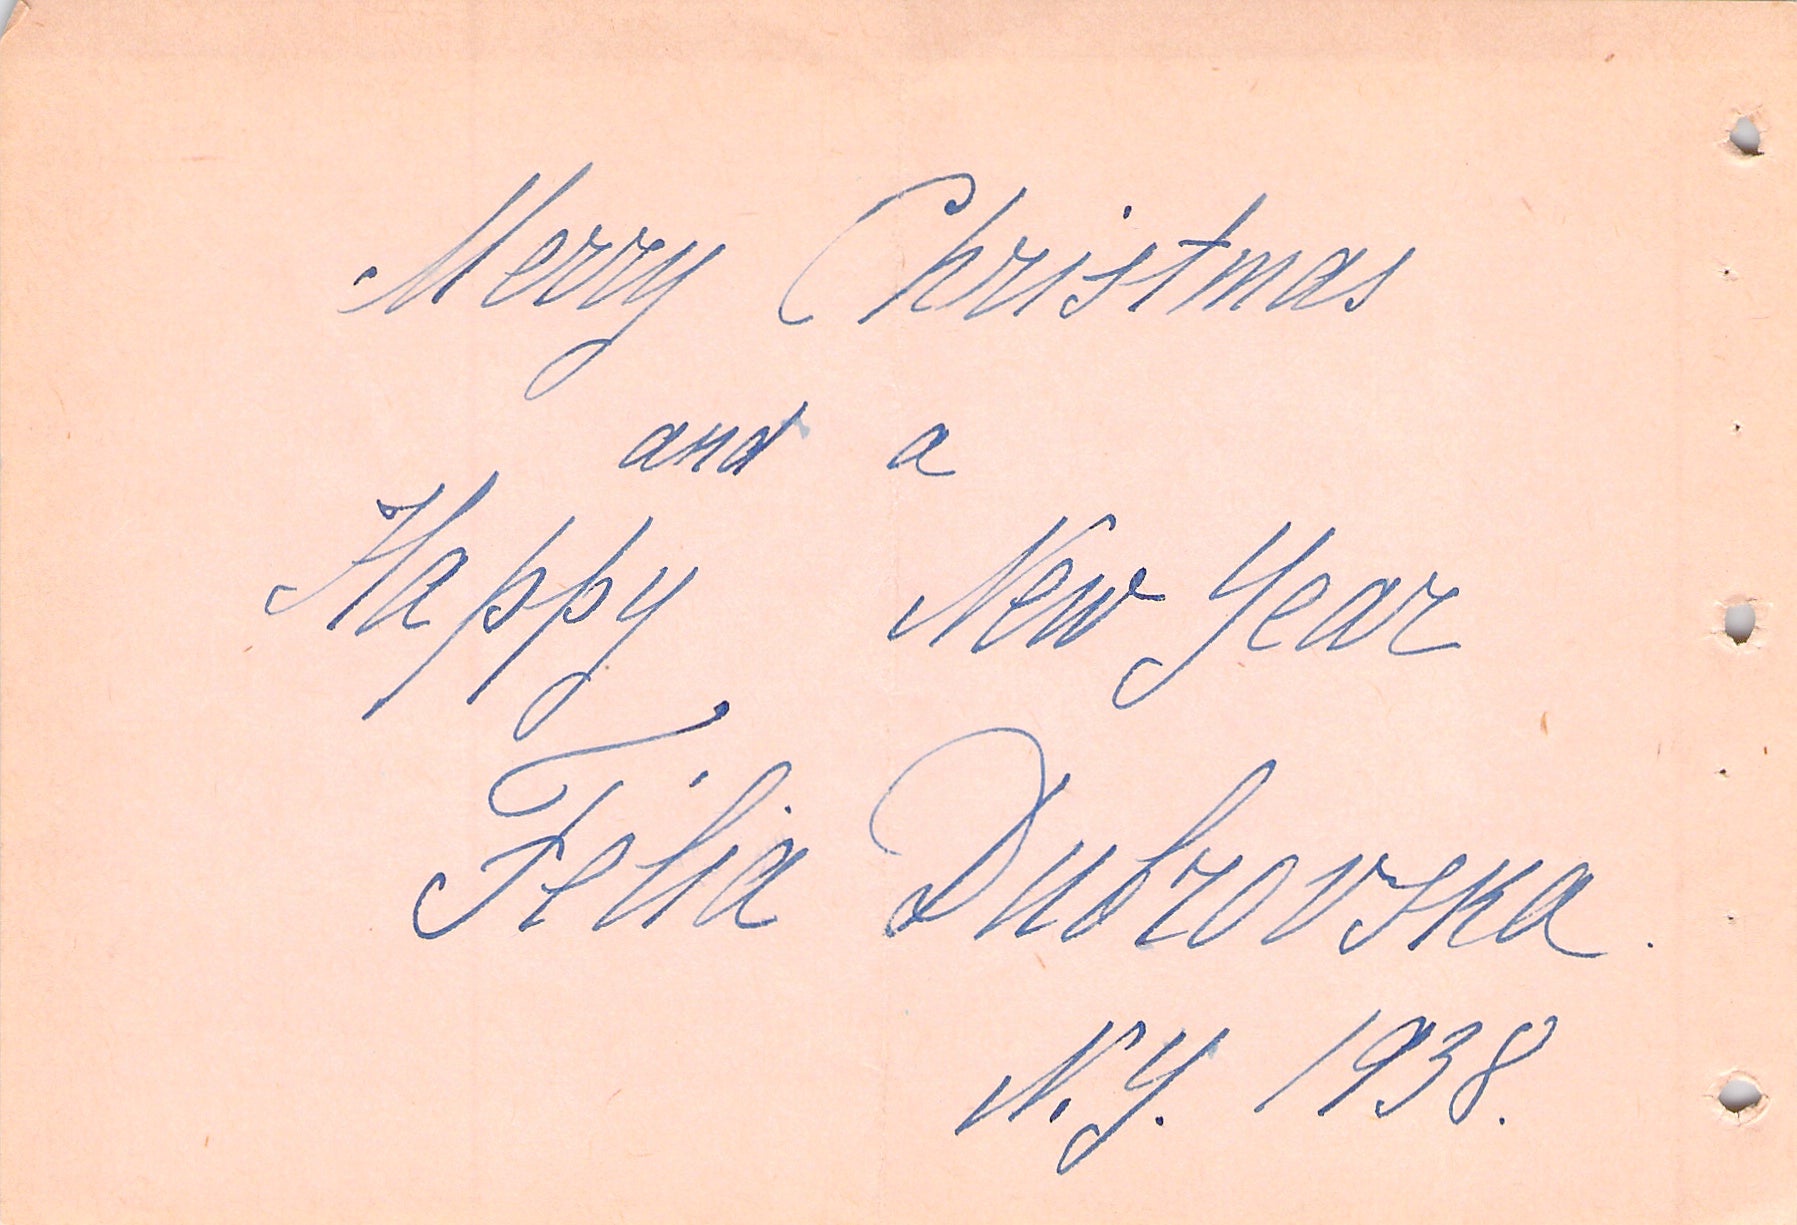 Merry Christmas
and a
Happy New Year
Félia Dubrovska.
N.Y. 1938.